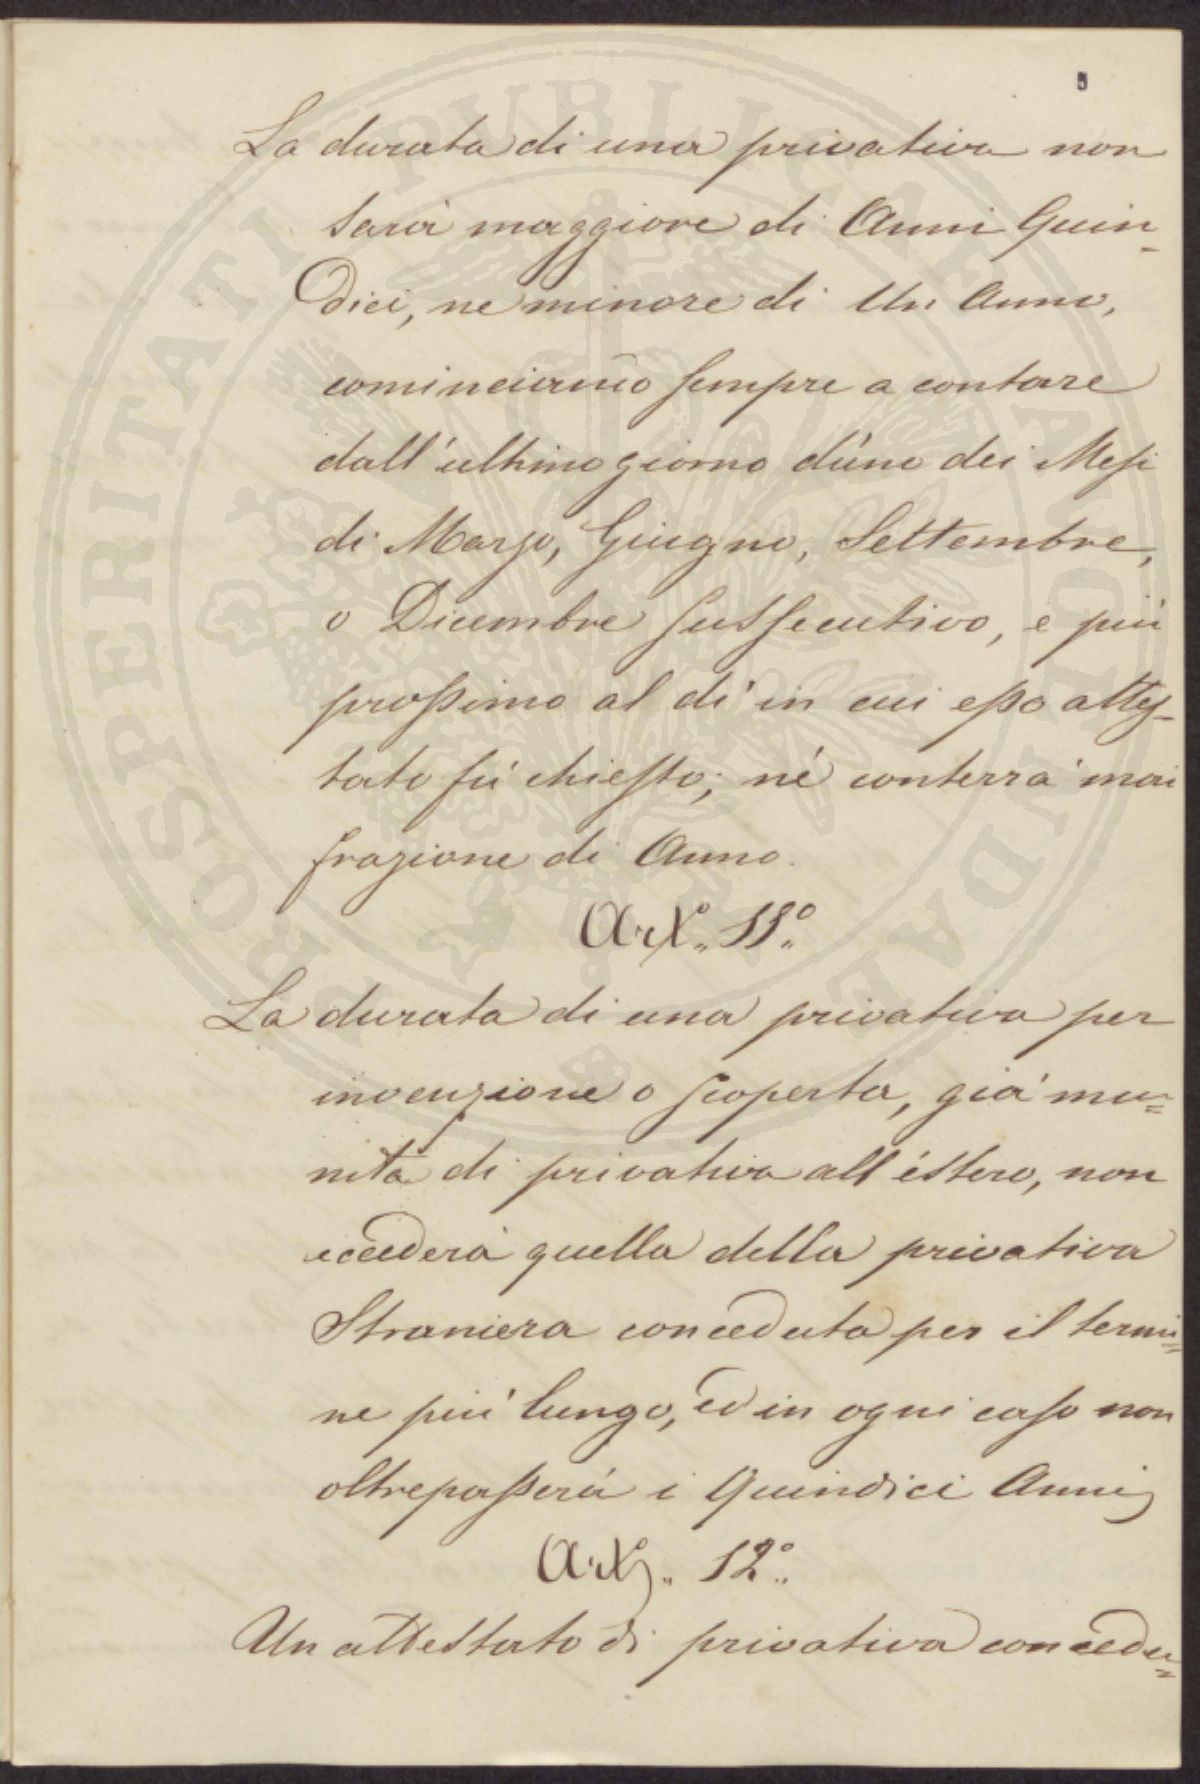 La durata di una privativa non
sarà maggiore di Anni Quin-
dici, ne minore di Un Anno,
cominciando sempre a contare
dall'ultimo giorno d'uno dei Mesi
di Marzo, Giugno, Settembre,
o Dicembre sussecutivo, e più
prossimo al dì in cui esso attes-
tato fù chiesto; né conterrà mai
frazione di Anno.
Art.º 11º
La durata di una privativa per
invenzione o scoperta, già mu=
nita di privativa all'éstero, non
eccederà quella della privativa
Straniera conceduta per il termi=
ne più lungo, ed in ogni caso non
oltrepasserà i Quindici Anni
Art. 12º
Un attestato di privativa concedu=
PROSPERITATI PUBLICAE AUGENDAE